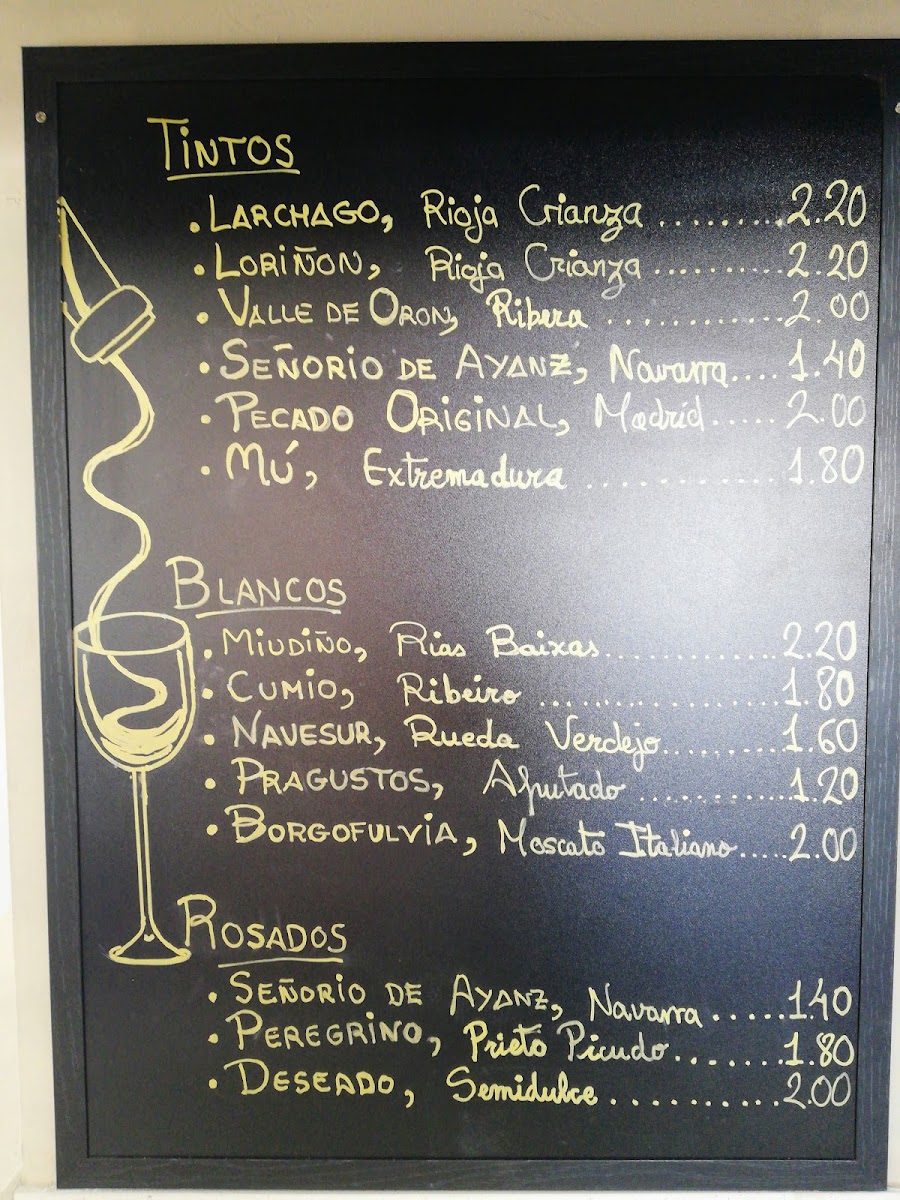 TINTOS
. LARCHAGO, Rioja Crianza .......... 2.20
. LORIÑON, Rioja Crianza .......... 2.20
. VALLE DE ORON, Ribera ............ 2.00
. SEÑORIO DE AYANZ, Navarra.... 1.40
. PECADO ORIGINAL, Madrid ..... 2.00
. MÚ, Extremadura ............ 1.80
BLANCOS
. MIUDIÑO, Rias Baixas............. 2.20
. CUMIO, Ribeiro ................. 1.80
. NAVESUR, Rueda Verdejo........ 1.60
. PRAGUSTOS, Afrutado ........... 1.20
. BORGOFULVIA, Moscato Italiano..... 2.00
ROSADOS
. SEÑORIO DE AYANZ, Navarra ..... 1.40
. PEREGRINO, Prieto Picudo....... 1.80
. DESEADO, Semidulce ........... 2.00